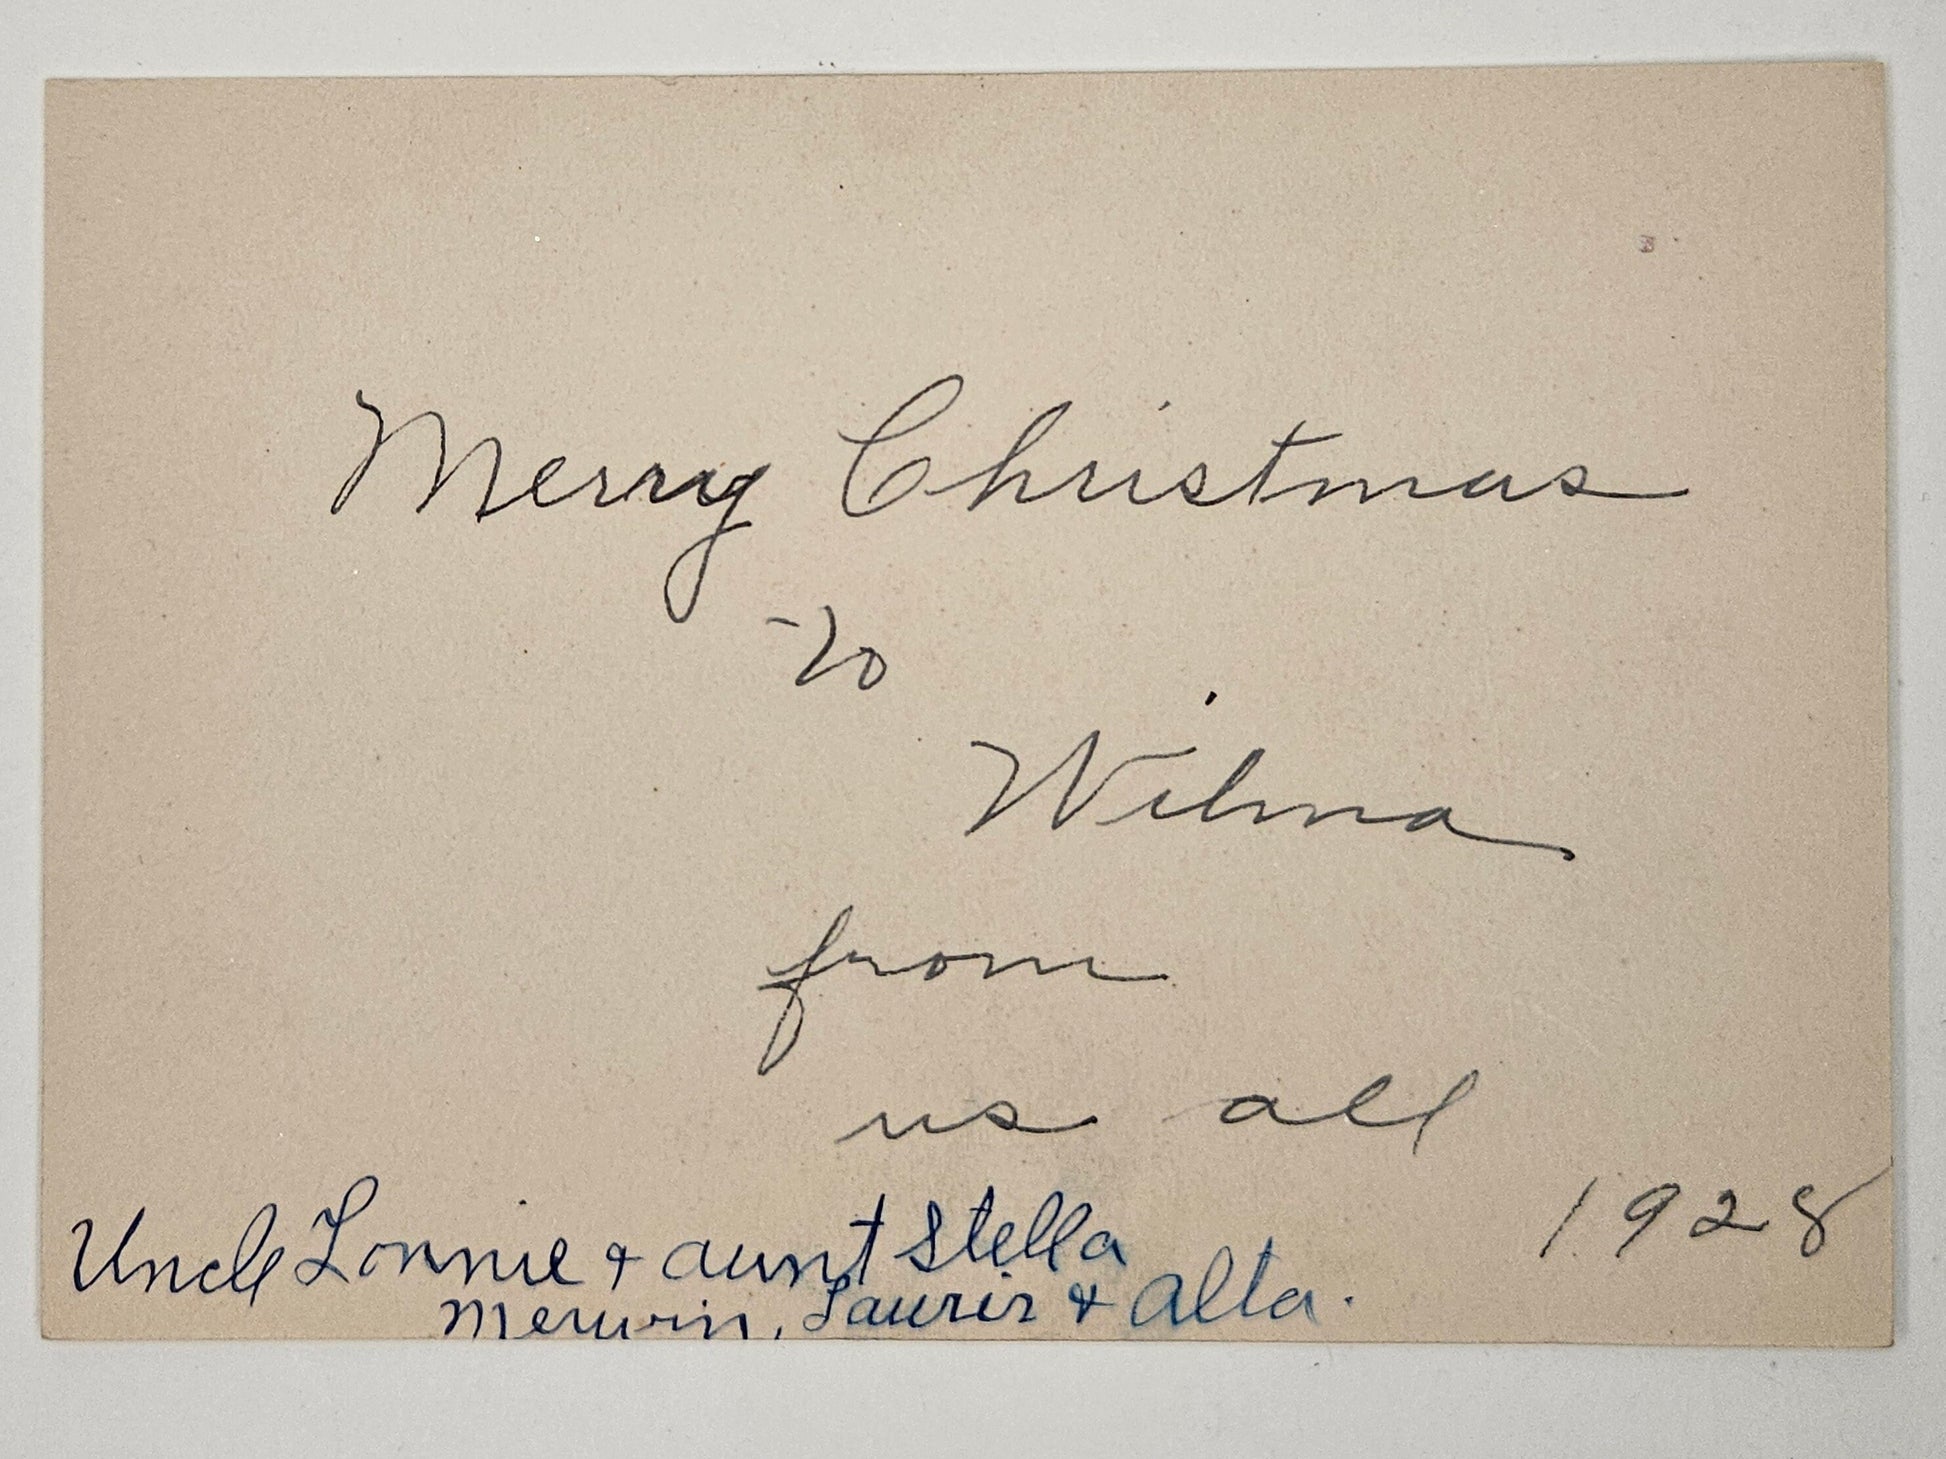 Merry Christmas
to
Wilma
from
us all
1928
Uncle Lonnie + aunt Stella
Merwin, & Alta.